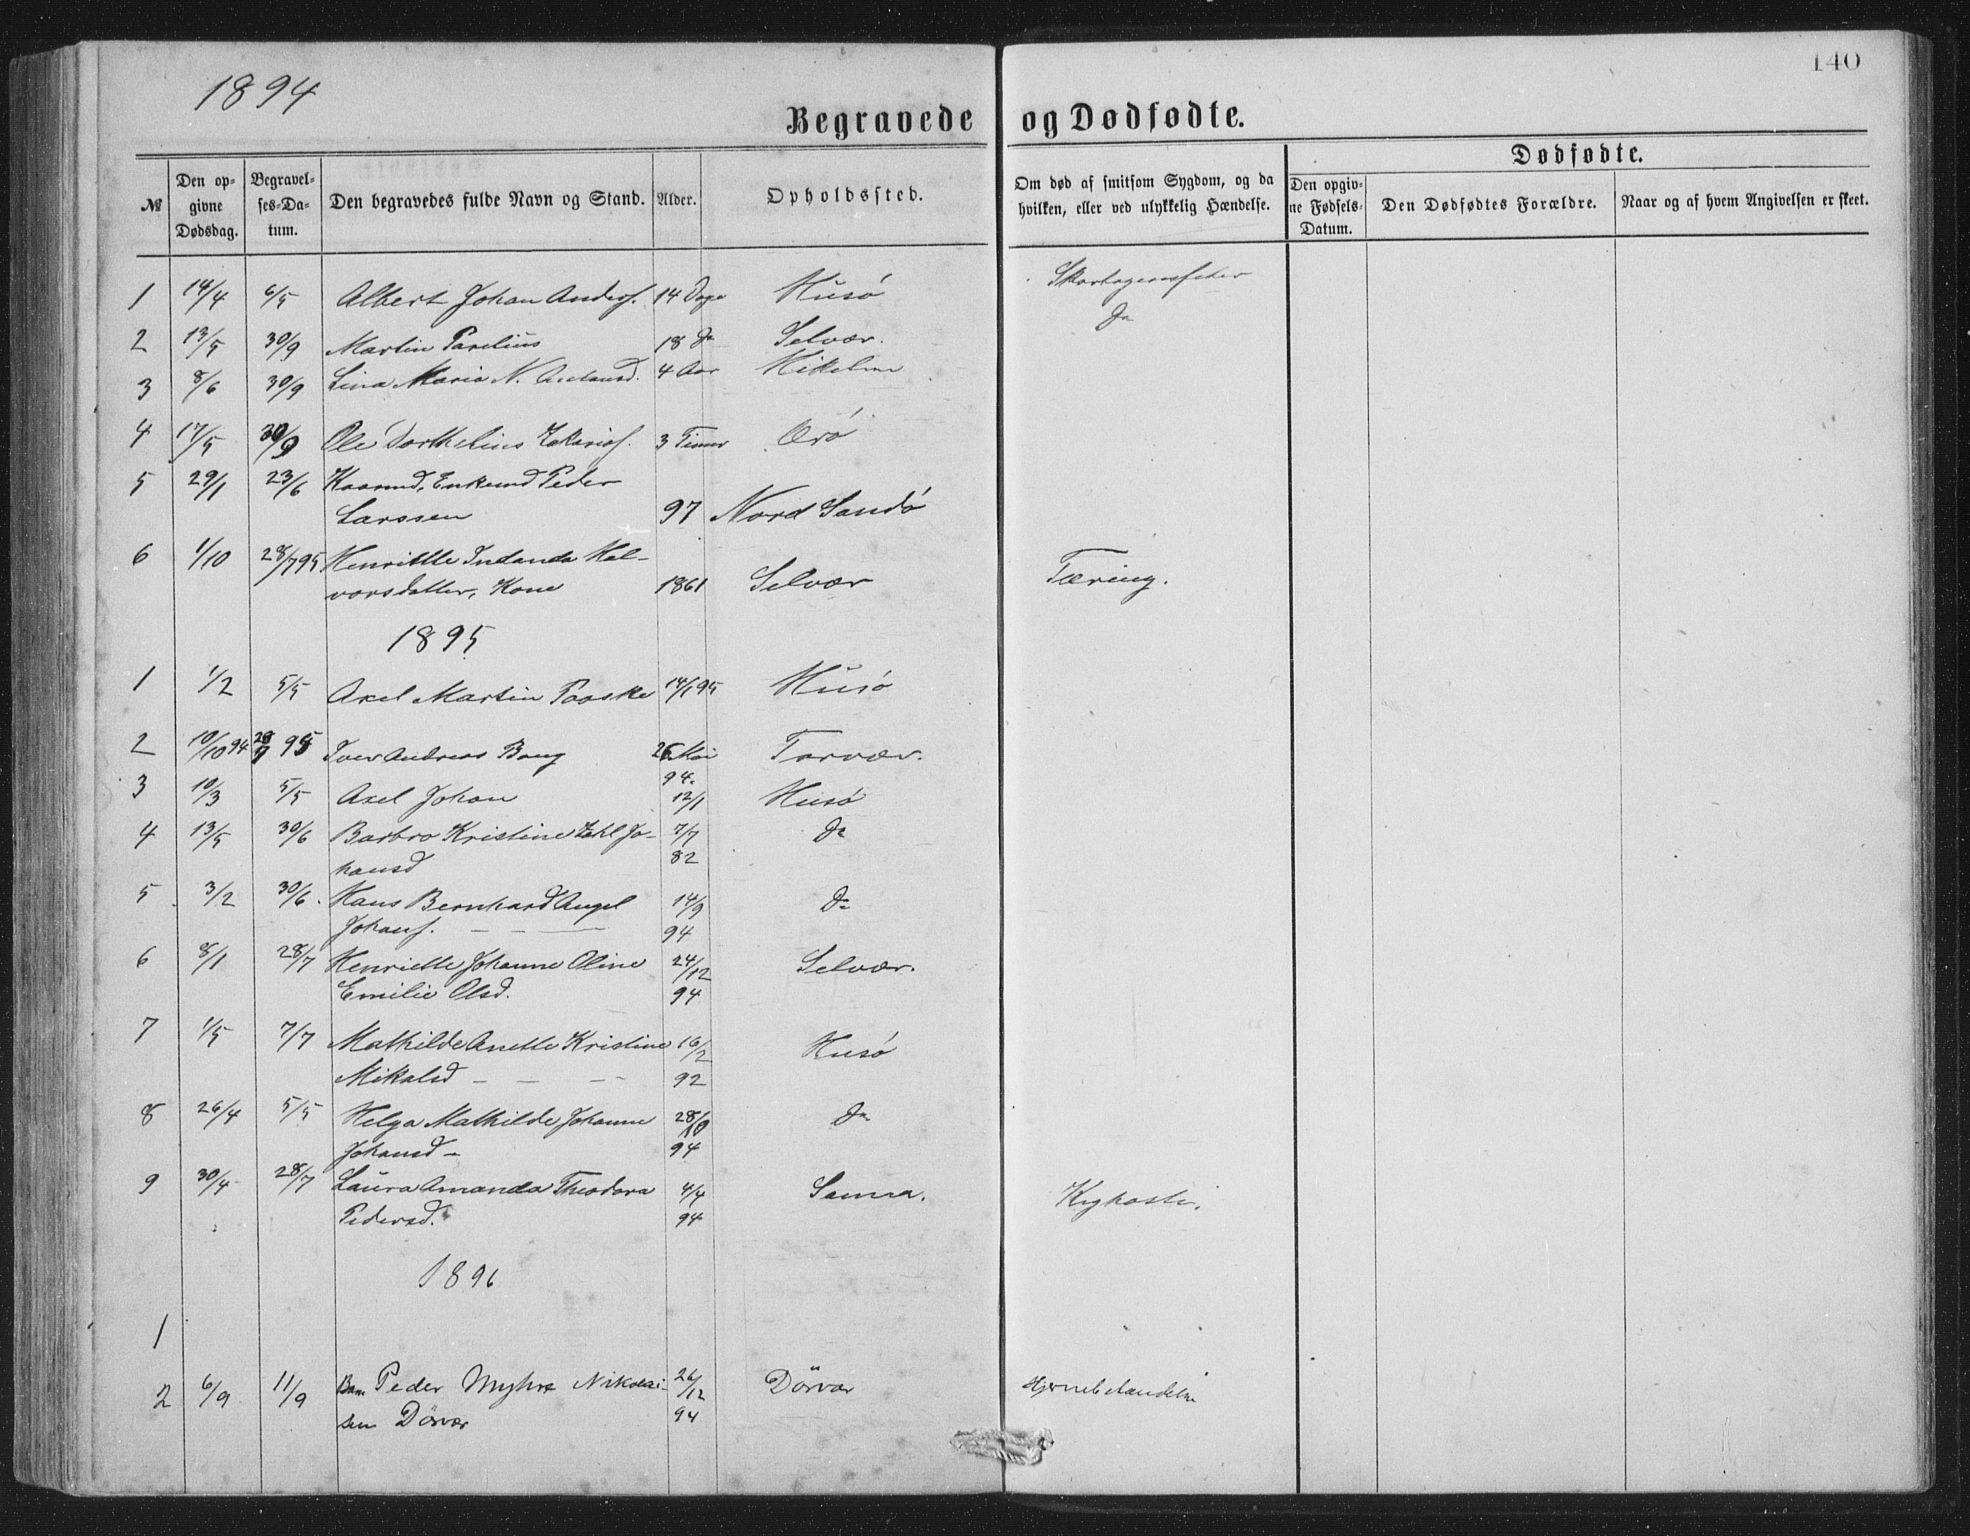 140
1894
Begravede og Dødfødte.
№ Den opgivne Dødsdag. Begravelses-Datum. Den begravedes fulde Navn og Stand. Alder. Opholdssted. Om død af smitsom Sygdom, og da hvilken, eller ved ulykkelig Hændelse. Dødfødte. Den opgivne Fødsels-Datum. Den Dødfødtes Forældre. Naar og af hvem Angivelsen er skeet.
1 14/4 6/5 Albert Johan Anders. 14 Dage Husø
2 13/5 30/9 Martin Parelius 18 do Selvær. do
3 8/6 30/9 Lina Maria N. 4 Aar
4 17/5 30/9 Ole Dorthelius Zakarias. 3 Timer
5 29/1 23/6 Kaarmd. Enkemd Peder
Larssen 97 Nord Sandø
6 1/10 28/7 95 Henriette Hal-
vorsdatter, Kone 1861 Selvær Tæring.
1895
1 1/2 5/5 Axel Martin Paaske 14/1 95 Husø
2 10/10 94 95 Iver Andreas Bang 26 Mai
94. Torvær.
3 10/3 5/5 Axel Johan 12/1 Husø
4 13/5 30/6 Barbro Kristine Zahl Jo- 7/7 do
hansd 82
5 3/2 30/6. Hans Bernhard Angel 14/9 Do
Johans. — — 94
6 8/1 28/7 Henriette Johanne Oline 24/12 Selvær.
Emilie Olsd. 94
7 1/5 7/7 Mathilde Anette Kristine 16/2 Husø
Mikalsd — — — 92
8 26/4 5/5 Helga Mathilde Johanne 28/10 do
Johansd — 94
9 30/4 28/7 Laura Amanda Theodora 4/4 Sanna. Kighoste.
Pedersd. 94
1896
1
2 6/9 11/9 Barn Peder Myhre Nikolai- 26/12 Dörvær
sen Dörvær 94